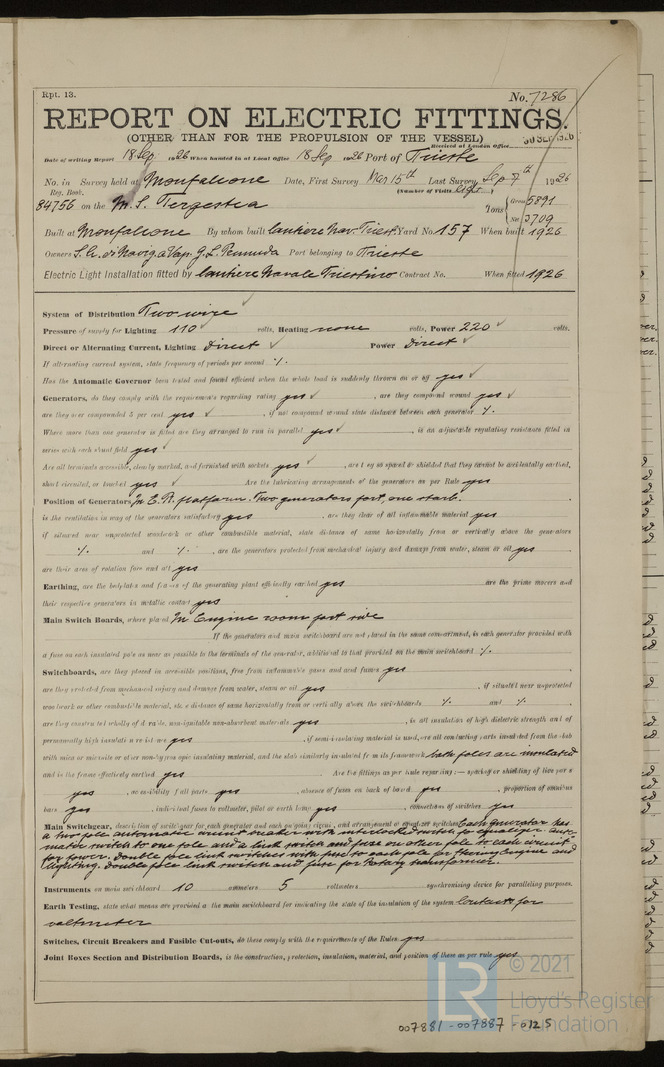 Rpt. 13.
No. 7286
REPORT ON ELECTRIC FITTINGS.
(OTHER THAN FOR THE PROPULSION OF THE VESSEL)
Received at London Office 30 SEP 1926
Date of writing Report 18 Sep 1926 When handed in at Local Office 18 Sep 1926 Port of Trieste
No. in Survey held at Monfalcone Date, First Survey Mar 15th Last Survey, Sep 7th 1926
Reg. Book. (Number of Visits
84756 on the M.S. Tergestea Tons { Gross 5891
Net 3709
Built at Monfalcone By whom built Cantiere Nav. Triest. Yard No. 157 When built 1926
Owners S.A. di Naviga Vap. G.L. Premuda Port belonging to Trieste
Electric Light Installation fitted by Cantiere Navale Triestino Contract No. When fitted 1926
System of Distribution Two wire
Pressure of supply for Lighting 110 volts, Heating none volts, Power 220 volts.
Direct or Alternating Current, Lighting Direct Power Direct
If alternating current system, state frequency of periods per second ./.
Has the Automatic Governor been tested and found efficient when the whole load is suddenly thrown on or off yes
Generators, do they comply with the requirements regarding rating yes , are they compound wound yes
are they over compounded 5 per cent. yes , if not compound wound state distance between each generator ./.
Where more than one generator is fitted are they arranged to run in parallel yes , is an adjustable regulating resistance fitted in
series with each shunt field yes
Are all terminals accessible, clearly marked, and furnished with sockets yes , are they so spaced or shielded that they cannot be accidentally earthed,
short circuited, or touched yes Are the lubricating arrangements of the generators as per Rule yes
Position of Generators In E.R. platform. Two generators port, one starb.
is the ventilation in way of the generators satisfactory yes , are they clear of all inflammable material yes
if situated near unprotected woodwork or other combustible material, state distance of same horizontally from or vertically above the generators
./. and ./. , are the generators protected from mechanical injury and damage from water, steam or oil yes
are their axes of rotation fore and aft yes
Earthing, are the bedplates and frames of the generating plant efficiently earthed yes are the prime movers and
their respective generators in metallic contact yes
Main Switch Boards, where placed In Engine room port side
If the generators and main switchboard are not placed in the same compartment, is each generator provided with
a fuse on each insulated pole as near as possible to the terminals of the generator, additional to that provided on the main switchboard ./.
Switchboards, are they placed in accessible positions, free from inflammable gases and acid fumes yes
are they protected from mechanical injury and damage from water, steam or oil yes , if situated near unprotected
woodwork or other combustible material, state distance of same horizontally from or vertically above the switchboards ./. and ./.
are they constructed wholly of durable, non-ignitable non-absorbent materials yes , is all insulation of high dielectric strength and of
permanently high insulation resistance yes , if semi-insulating material is used, are all conducting parts insulated from the slab
with mica or micanite or other non-hygroscopic insulating material, and the slab similarly insulated from its framework both poles are insulated
and is the frame effectively earthed yes Are the fittings as per rule regarding:— spacing or shielding of live parts
yes , accessibility of all parts yes , absence of fuses on back of board yes , proportion of omnibus
bars yes , individual fuses to voltmeter, pilot or earth lamp yes , connections of switches yes
Main Switchgear, description of switchgear for each generator and each outgoing circuit, and arrangement of equaliser switches Each generator has
a two pole automatic circuit breaker with interlocked switch for equaliser. Auto-
matic switch to one pole and a link switch and fuse on other pole to each circuit
for power. Double pole link switches with fuse to each pole for Heating Engine and
Lighting. Double pole link switch and fuse for Rotary transformer.
Instruments on main switchboard 10 ammeters 5 voltmeters synchronising device for paralleling purposes.
Earth Testing, state what means are provided at the main switchboard for indicating the state of the insulation of the system Contacts for
voltmeter
Switches, Circuit Breakers and Fusible Cut-outs, do these comply with the requirements of the Rules yes
Joint Boxes Section and Distribution Boards, is the construction, protection, insulation, material, and position of these as per rule yes
LR © 2021
Lloyd's Register
Foundation
007881 - 007887 - 0125